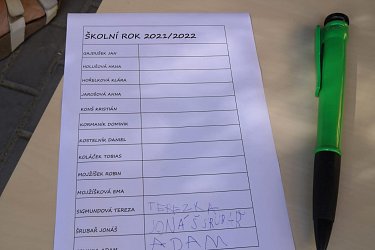 ŠKOLNÍ ROK 2021/2022
GAJDUŠEK JAN
HOLUŠOVÁ HANA
HOŘELKOVÁ KLÁRA
JAROŠOVÁ ANNA
KONŠ KRISTIÁN
KORMANÍK DOMINIK
KOSTELNÍK DANIEL
KOLÁČEK TOBIAS
MOJŽÍŠEK ROBIN
MOJŽÍŠKOVÁ EMA
SIGMUNDOVÁ TEREZA TEREZKA
ŠRUBAŘ JONÁŠ JONÁŠ
ADAM ADAM